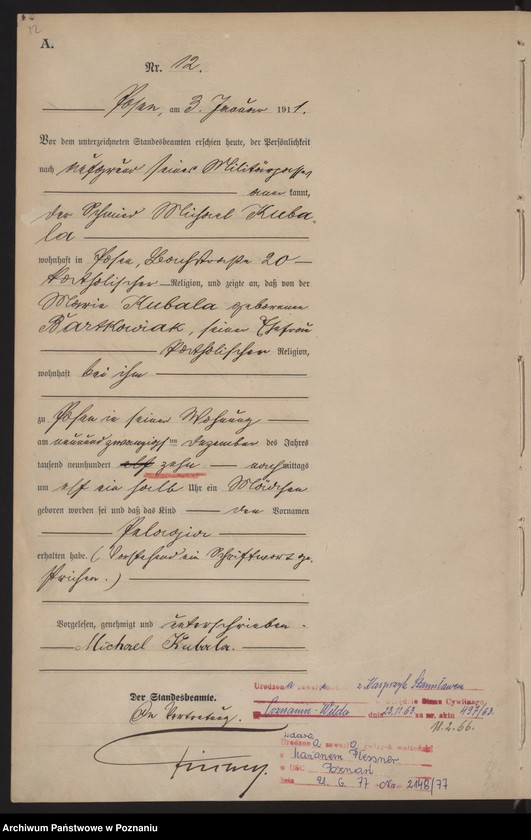 12
A.
Nr. 12.
Posen, am 3. Januar 1911.
Vor dem unterzeichneten Standesbeamten erschien heute, der Persönlichkeit
nach auf Grund seines Militärpasses
anerkannt,
der Schmied Michael Kuba-
la
wohnhaft in Posen, Bachstraße 20
katholischer Religion, und zeigte an, daß von der
Marie Kubala geborenen
Bartkowiak, seiner Ehefrau
katholischer Religion,
wohnhaft bei ihm
zu Posen in seiner Wohnung
am neunundzwanzigsten Dezember des Jahres
tausend neunhundert elf zehn nachmittags
um elf ein halb Uhr ein Mädchen
geboren worden sei und daß das Kind den Vornamen
Pelagia
erhalten habe. (Vorstehend ein Schriftwort ge-
strichen.)
Vorgelesen, genehmigt und unterschrieben.
Michael Kubala.
Der Standesbeamte.
In Vertretung.
Urodzona zawarła z Kasprzyk Stanisławem
w Urzędzie Stanu Cywilnego
Poznaniu-Wilda dnia za nr. aktu
11.2.66.
Urodzona zawarła związek małżeński
z Marianem Messner
w USC Poznań
dnia 21. 6. 77 Nr 2148/77
Archiwum Państwowe w Poznaniu